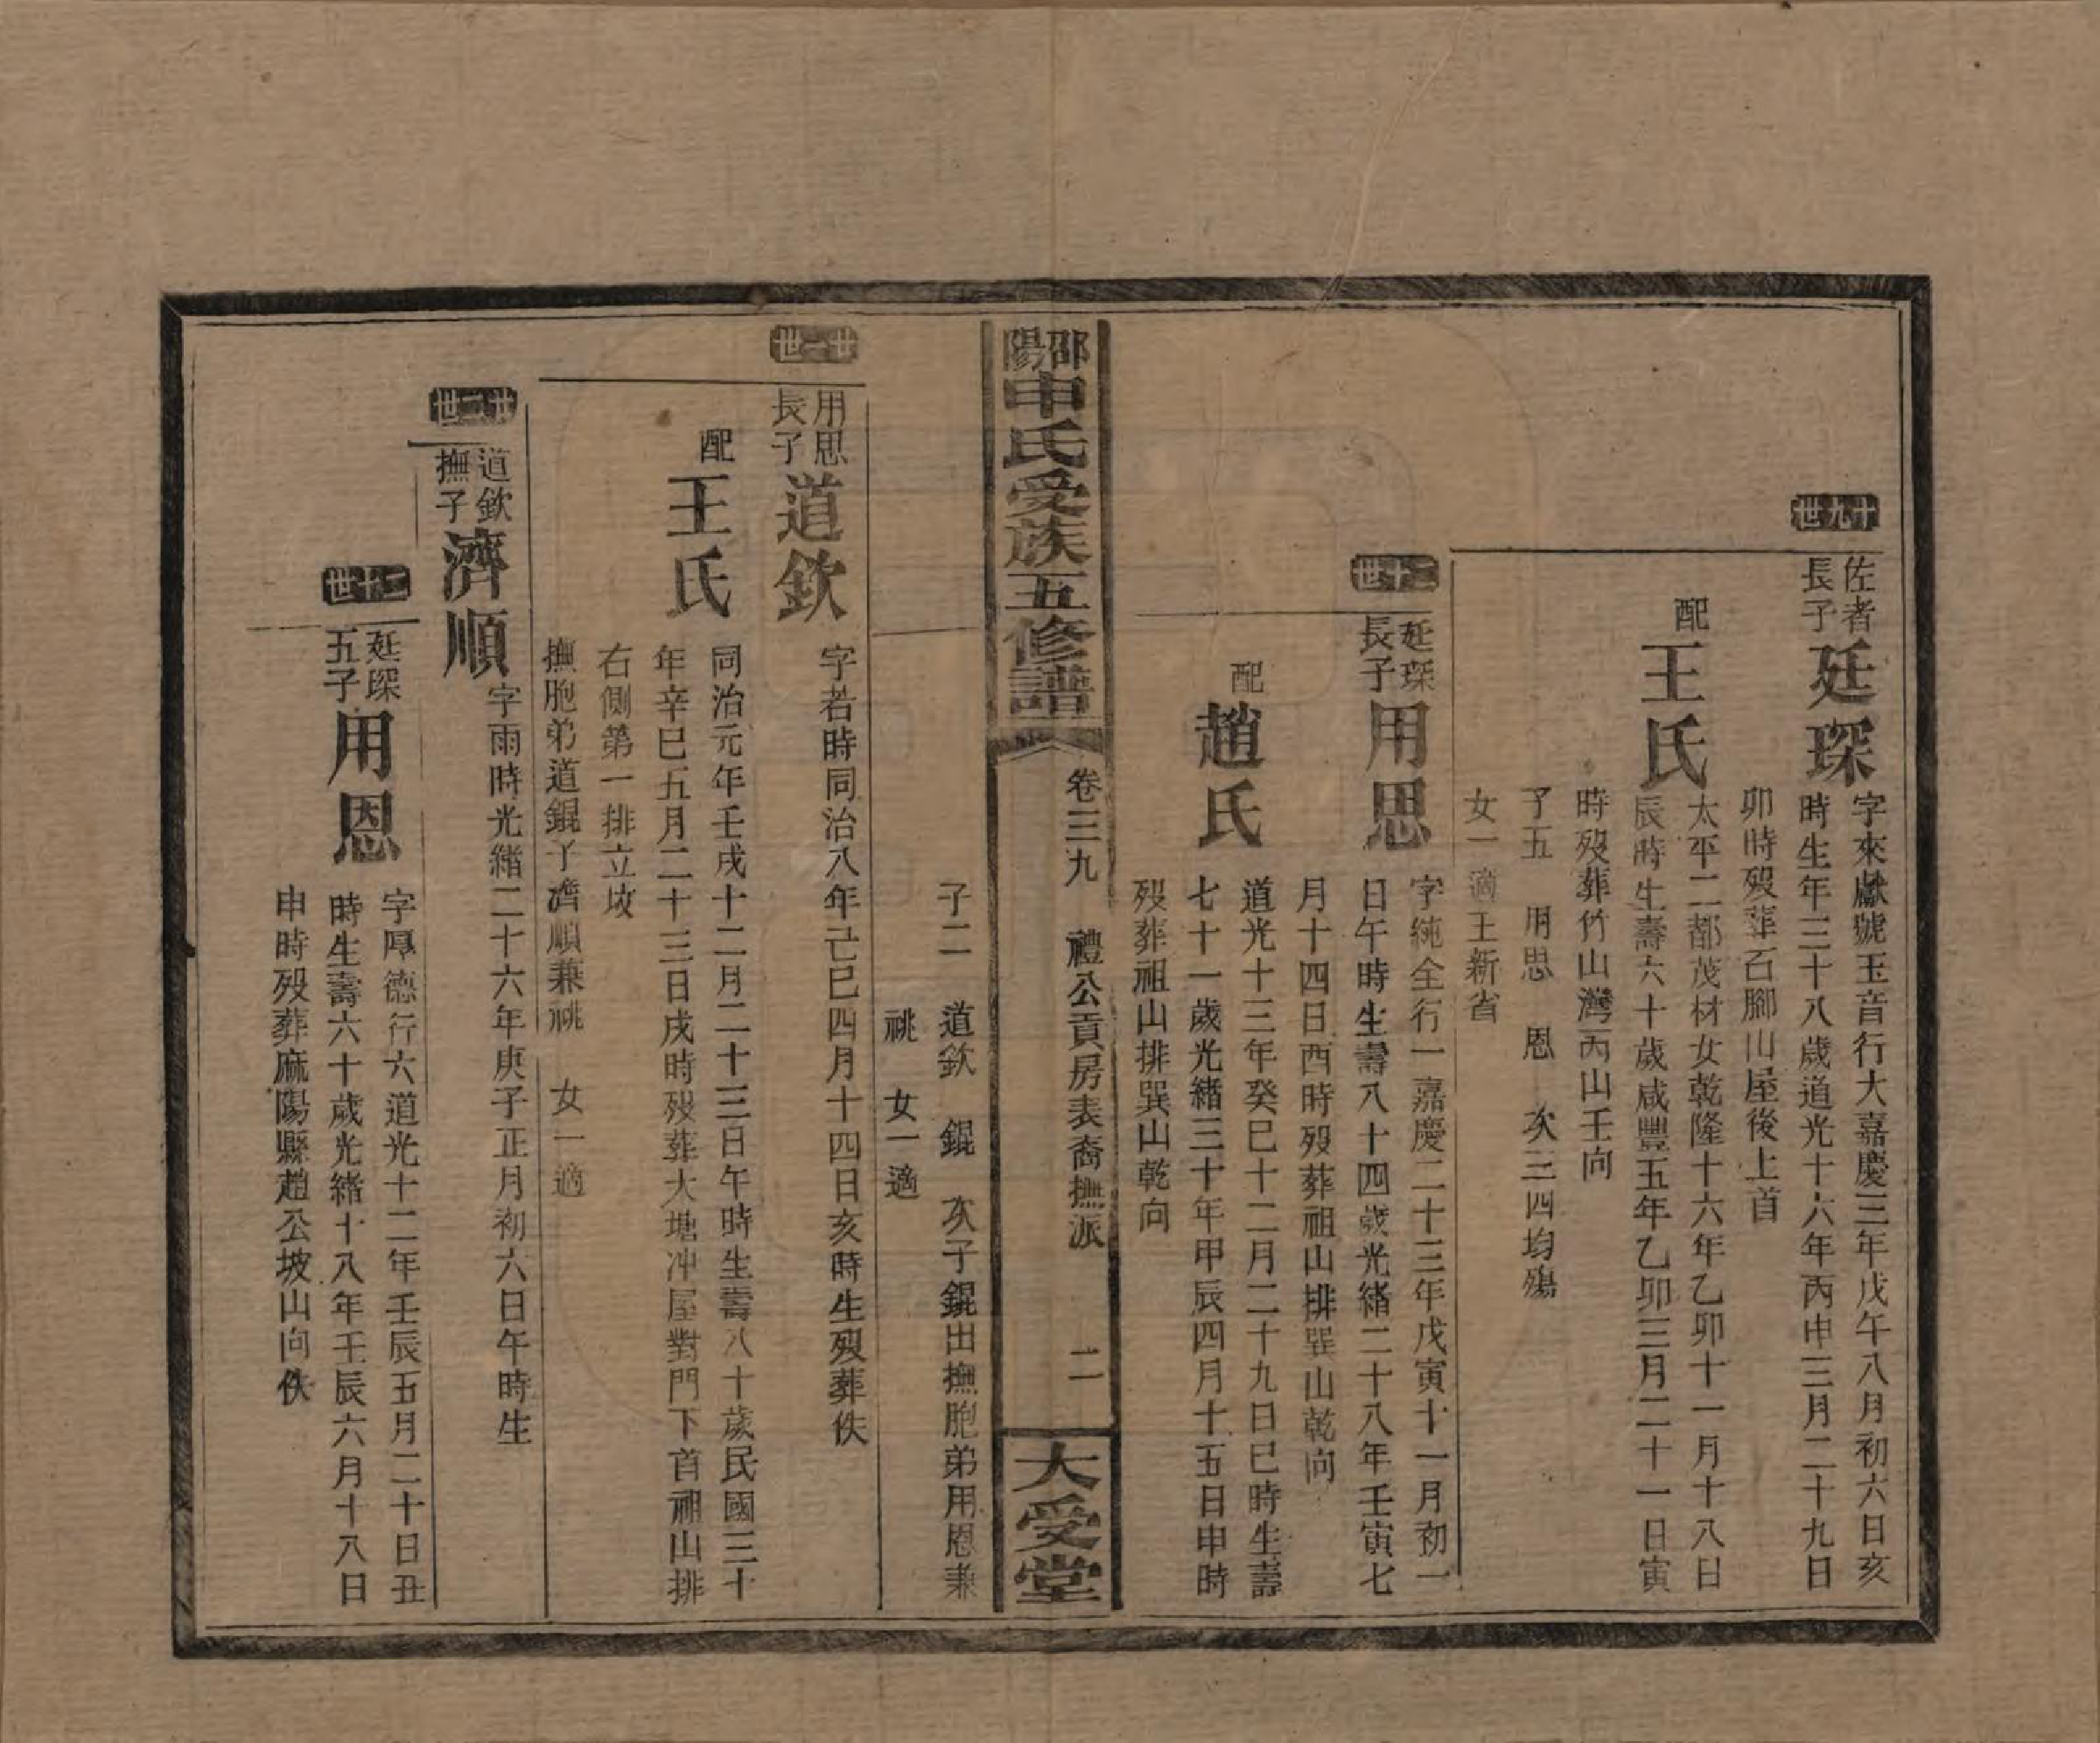 十九世
佐者
長子
廷琛
字來獻號玉音行大嘉慶三年戊午八月初六日亥
時生年三十八歲道光十六年丙申三月二十九日
卯時歿葬石腳山屋後上首
配
王氏
太平二都茂材女乾隆十六年乙卯十一月十八日
辰時生壽六十歲咸豐五年乙卯三月二十一日寅
時歿葬竹山灣丙山壬向
子五 用思 恩 次三四均殤
女一適王新省
二十世
廷琛
長子
用思
字純全行一嘉慶二十三年戊寅十一月初一
日午時生壽八十四歲光緒二十八年壬寅七
月十四日酉時歿葬祖山排巽山乾向
配
趙氏
道光十三年癸巳十二月二十九日巳時生壽
七十一歲光緒三十年甲辰四月十五日申時
歿葬祖山排巽山乾向
邵陽申氏受族五修譜
卷三九 禮公貢房表裔撫派 二
大受堂
子二 道欽 錕 次子錕出撫胞弟用恩兼
祧 女一適
廿一世
用思
長子
道欽
字若時同治八年己巳四月十四日亥時生歿葬佚
配
王氏
同治元年壬戌十二月二十三日午時生壽八十歲民國三十
年辛巳五月二十三日戌時歿葬大塘冲屋對門下首祖山排
右側第一排立坟
撫胞弟道錕子濟順兼祧 女一適
廿二世
道欽
撫子
濟順
字雨時光緒二十六年庚子正月初六日午時生
二十世
廷琛
五子
用恩
字厚德行六道光十二年壬辰五月二十日丑
時生壽六十歲光緒十八年壬辰六月十八日
申時歿葬麻陽縣趙公坡山向佚